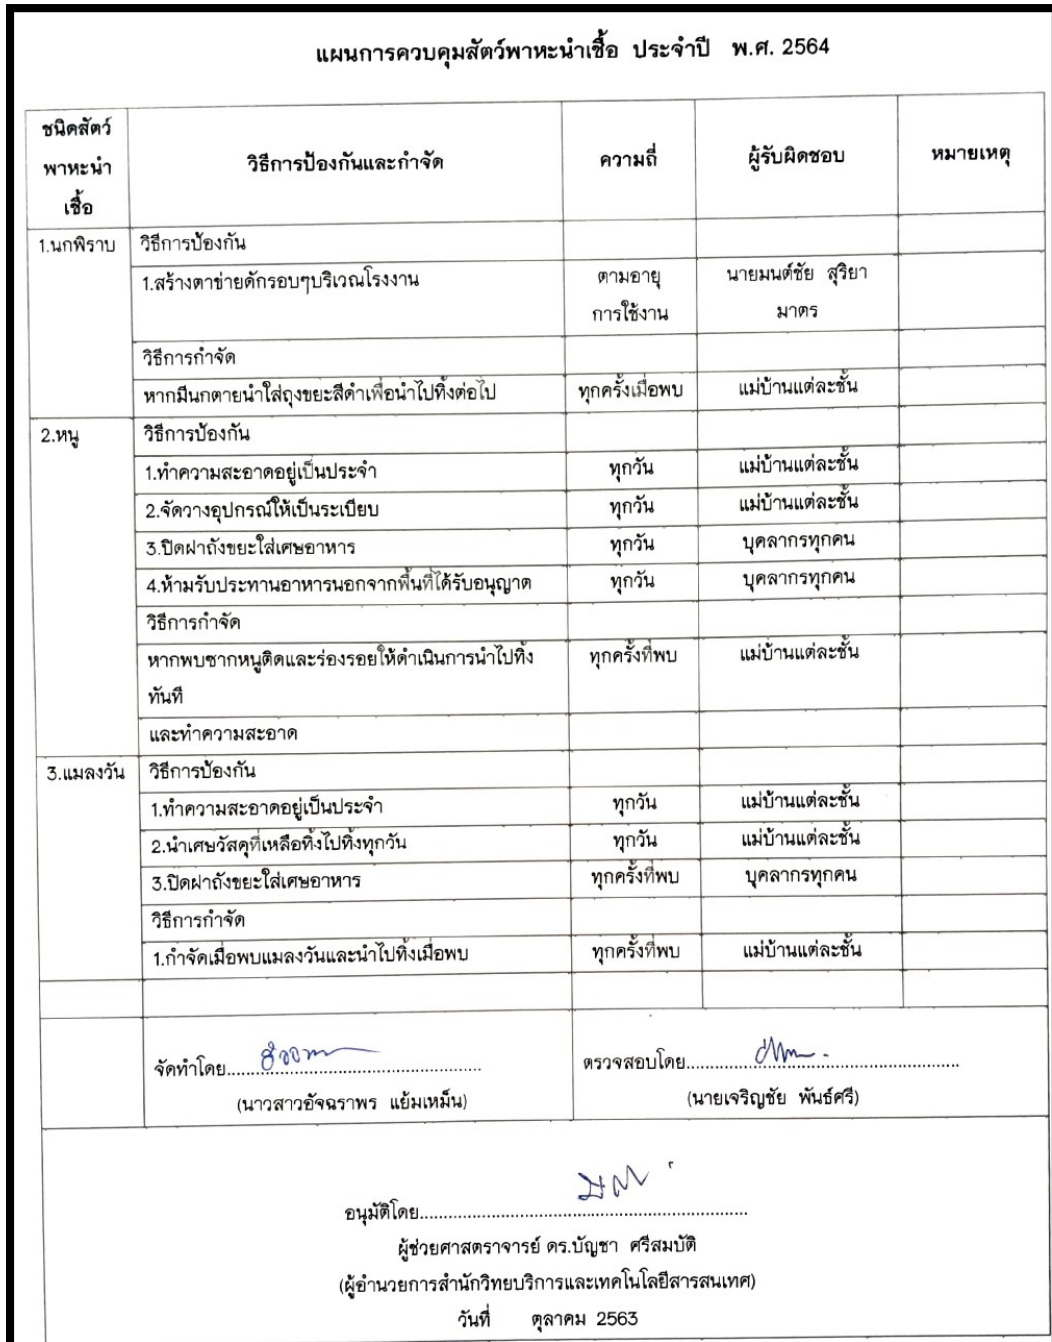 แผนการควบคุมสัตว์พาหะนำเชื้อ ประจำปี พ.ศ. 2564
ชนิดสัตว์พาหะนำเชื้อ วิธีการป้องกันและกำจัด ความถี่ ผู้รับผิดชอบ หมายเหตุ
1.นกพิราบ วิธีการป้องกัน
1.สร้างตาข่ายดักรอบๆบริเวณโรงงาน ตามอายุ นายมนต์ชัย สุริยา
การใช้งาน มาตร
วิธีการกำจัด
หากมีนกตายนำใส่ถุงขยะสีดำเพื่อนำไปทิ้งต่อไป ทุกครั้งเมื่อพบ แม่บ้านแต่ละชั้น
2.หนู วิธีการป้องกัน
1.ทำความสะอาดอยู่เป็นประจำ ทุกวัน แม่บ้านแต่ละชั้น
2.จัดวางอุปกรณ์ให้เป็นระเบียบ ทุกวัน แม่บ้านแต่ละชั้น
3.ปิดฝาถังขยะใส่เศษอาหาร ทุกวัน บุคลากรทุกคน
4.ห้ามรับประทานอาหารนอกจากพื้นที่ได้รับอนุญาต ทุกวัน บุคลากรทุกคน
วิธีการกำจัด
หากพบซากหนูติดและร่องรอยให้ดำเนินการนำไปทิ้ง ทุกครั้งที่พบ แม่บ้านแต่ละชั้น
ทันที
และทำความสะอาด
3.แมลงวัน วิธีการป้องกัน
1.ทำความสะอาดอยู่เป็นประจำ ทุกวัน แม่บ้านแต่ละชั้น
2.นำเศษวัสดุที่เหลือทิ้งไปทิ้งทุกวัน ทุกวัน แม่บ้านแต่ละชั้น
3.ปิดฝาถังขยะใส่เศษอาหาร ทุกครั้งที่พบ บุคลากรทุกคน
วิธีการกำจัด
1.กำจัดเมื่อพบแมลงวันและนำไปทิ้งเมื่อพบ ทุกครั้งที่พบ แม่บ้านแต่ละชั้น
จัดทำโดย................................................ ตรวจสอบโดย................................................
(นาวสาวอัจฉราพร แย้มเหม็น) (นายเจริญชัย พันธ์ศรี)
อนุมัติโดย................................................
ผู้ช่วยศาสตราจารย์ ดร.บัญชา ศรีสมบัติ
(ผู้อำนวยการสำนักวิทยบริการและเทคโนโลยีสารสนเทศ)
วันที่ ตุลาคม 2563